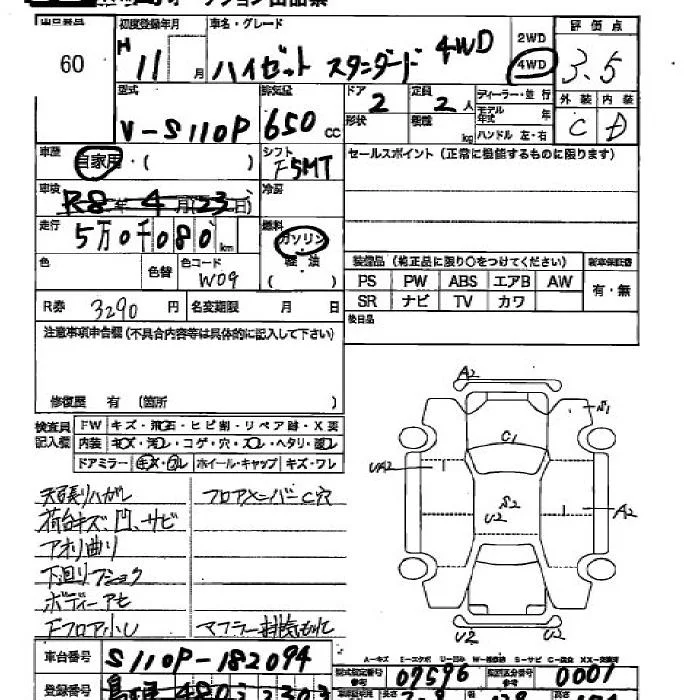 オークション出品票
出品番号
60
初度登録年月
H 11 月
車名・グレード
ハイゼット スタンダード 4WD
2WD
4WD
評価点
3.5
型式
V-S110P
排気量
650 cc
ドア
2
定員
2人
形状
積載 kg
ディーラー・並行
モデル年式 年
ハンドル 左・右
外装 内装
C D
車歴
自家用・( )
シフト
F5MT
セールスポイント (正常に機能するものに限ります)
車検
R8年4月(23日)
冷房
走行
5万0千080km
燃料
ガソリン
軽油
( )
色
色替
色コード
W09
装備品 (純正品に限り○をつけてください)
新車保証書
PS PW ABS エアB AW
有・無
SR ナビ TV カワ
R券 3290円
名変期限 月 日
後日品
注意事項申告欄(不具合内容等は具体的に記入して下さい)
修復歴 有 (箇所 )
検査員記入欄
FW キズ・飛石・ヒビ割・リペア跡・X要
内装 キズ・汚レ・コゲ・穴・スレ・ヘタリ・
ドアミラー キズ・ワレ ホイール・キャップ キズ・ワレ
天張りハガレ
フロアメンバーC穴
荷台キズ、凹、サビ
アオリ曲り
下廻りフショク
ボディーアセ
Fフロア小U
マフラー排気もれ
A2
S1
C1
UA2
S2
U2
A2
U2
U2
車台番号
S110P-182094
A-キズ E-エクボ U-凹み W-補修跡 S-サビ C-腐食 XX-交換済
型式指定番号
参考
07596
類別区分番号
参考
0001
登録番号